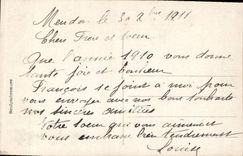 Meudon le 30 Xbre 1911
Chers Frère et Soeur
Que l'année 1910 vous donne
santé joie et bonheur
François se joint à moi pour
vous envoyer avec nos bons souhaits
nos sincères amitiés
Votre soeur qui vous aime et
vous embrasse bien tendrement
Louise